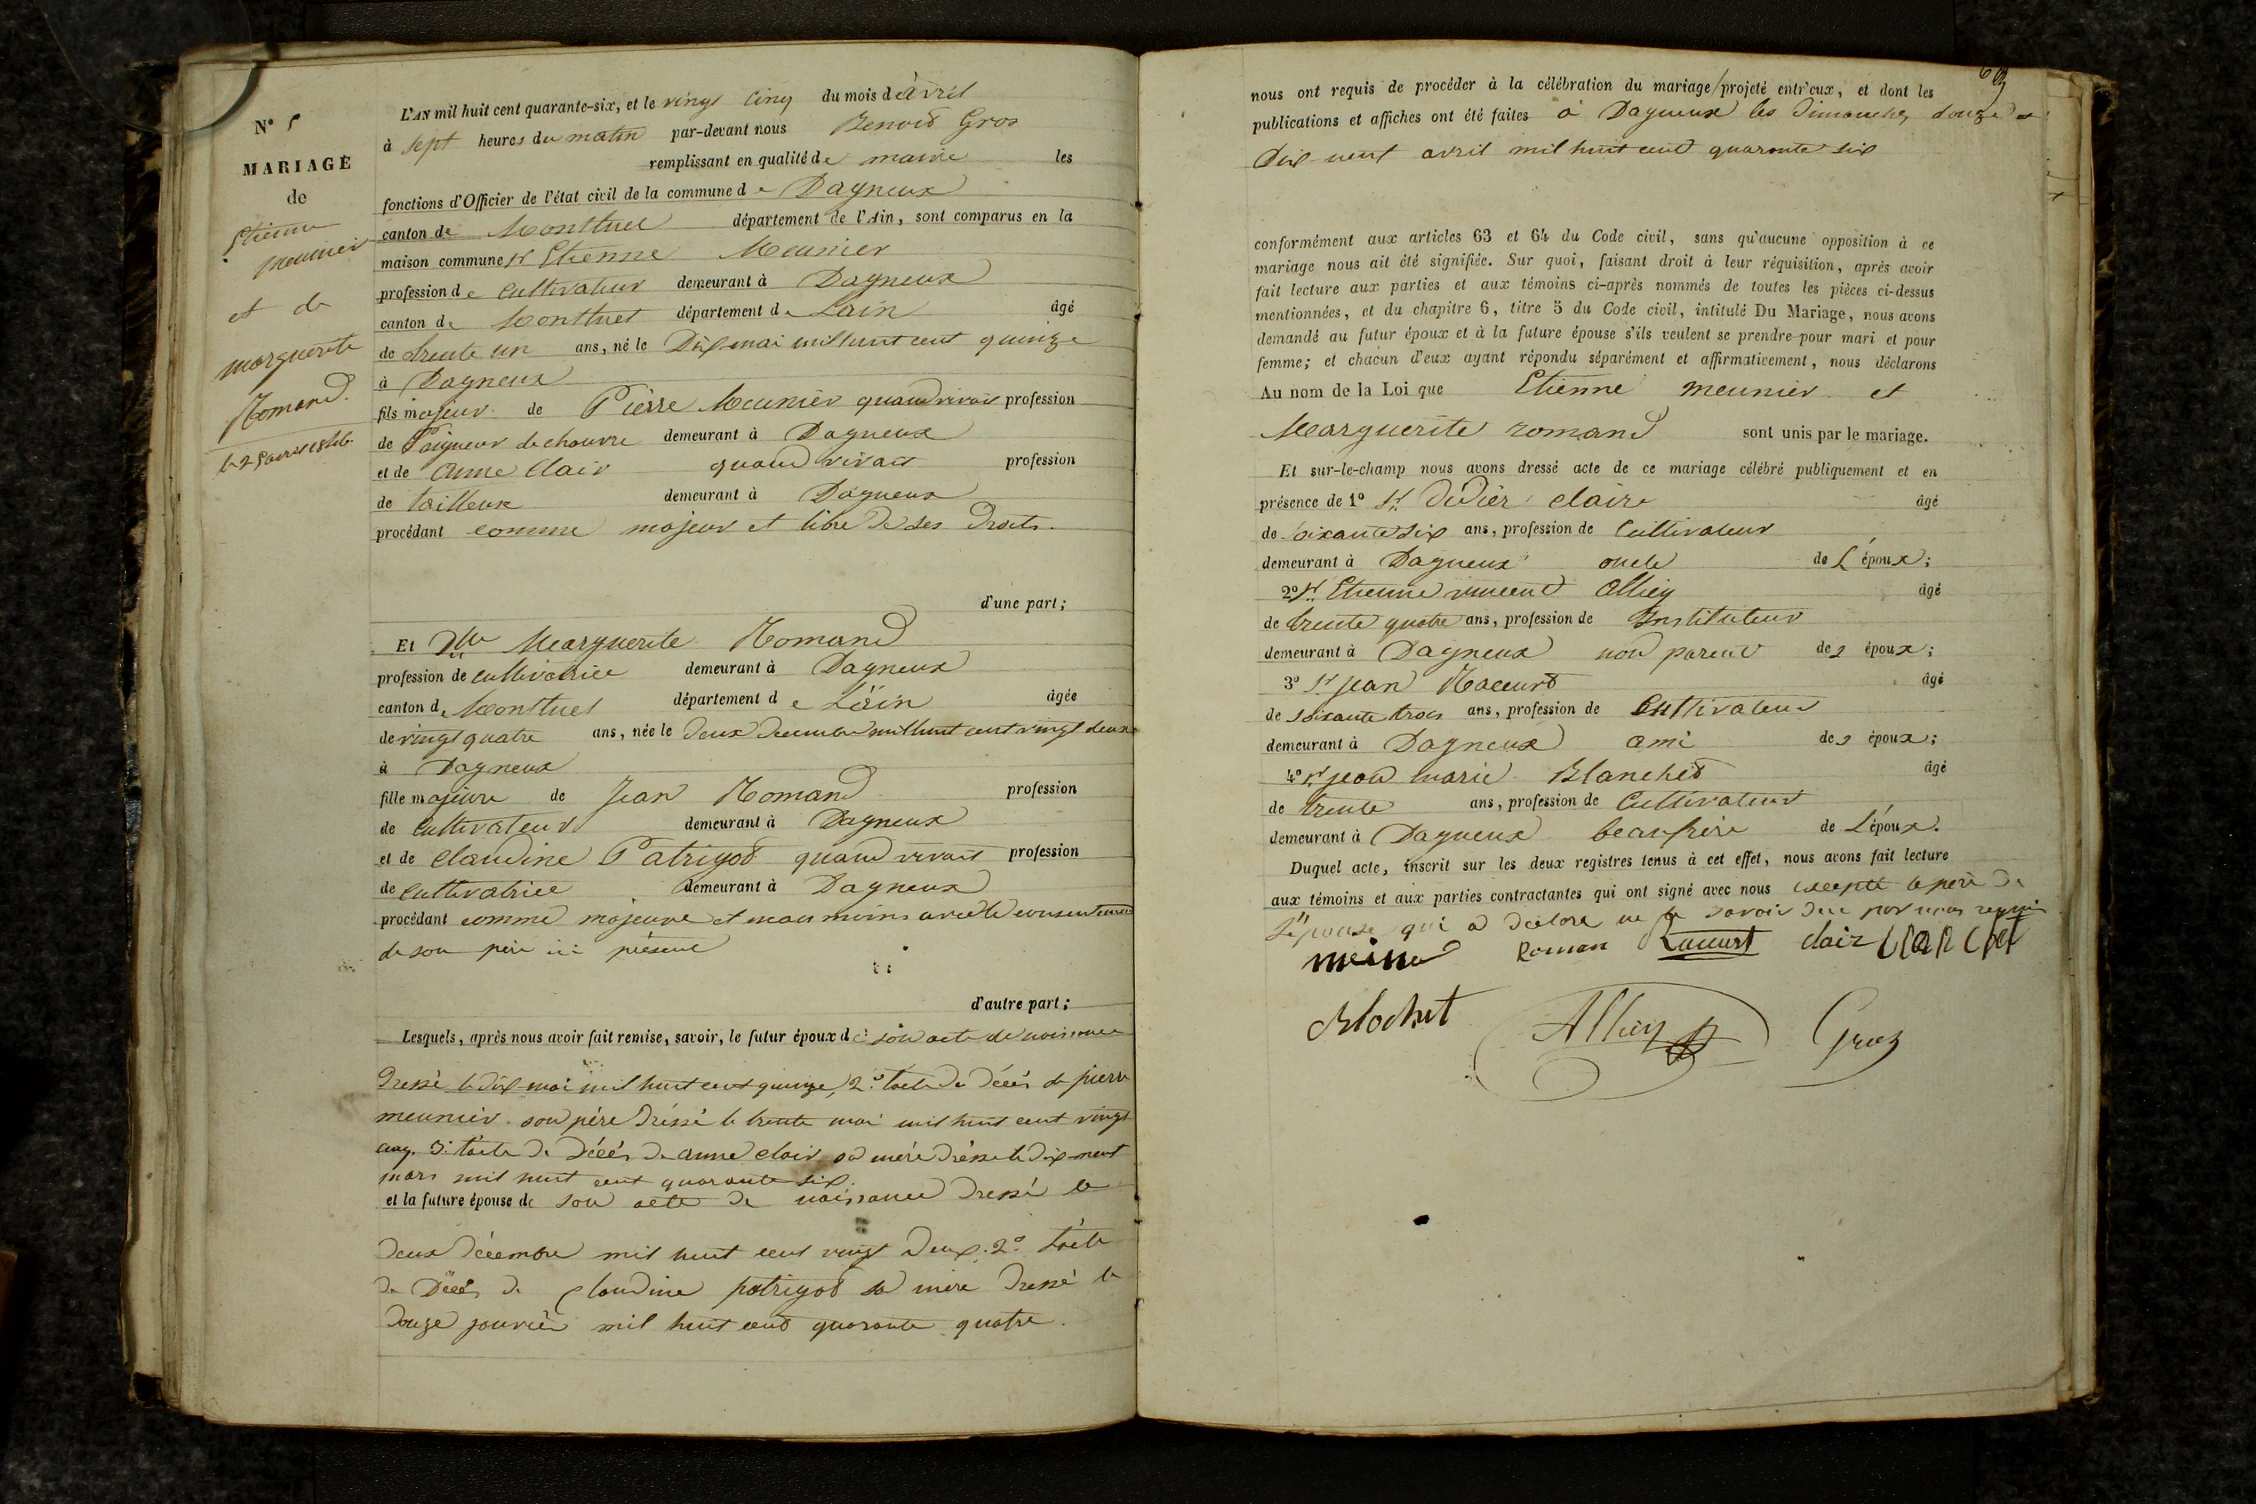 N° 5
MARIAGE
de
Etienne
meunier
et de
marguerite
Romand.
le 25 avril 1846
L'AN mil huit cent quarante-six, et le vingt cinq du mois d'avril
à sept heures du matin par-devant nous Benoit Gros
remplissant en qualité de maire les
fonctions d'Officier de l'état civil de la commune de Dagneux
canton de Montluel département de l'Ain, sont comparus en la
maison commune sr Etienne Meunier
profession de cultivateur demeurant à Dagneux
canton de Montluel département de Lain âgé
de trente un ans, né le Dix mai mil huit cent quinze
à Dagneux
fils majeur de Pierre Meunier quand vivait profession
de Peigneur de chanvre demeurant à Dagneux
et de anne Clair quand vivait profession
de tailleuse demeurant à Dagneux
procédant comme majeur et libre de ses droits.
d'une part;
Et Dlle Marguerite Romand
profession de cultivatrice demeurant à Dagneux
canton de Montluel département de L'ain âgée
de vingt quatre ans, née le deux decembre mil huit cent vingt deux
à Dagneux
fille majeure de Jean Romand profession
de cultivateur demeurant à Dagneux
et de Claudine Patrigot quand vivait profession
de cultivatrice demeurant à Dagneux
procédant comme majeure et mais moins avec le consentement
de son père ici présent
d'autre part;
Lesquels, après nous avoir fait remise, savoir, le futur époux de son acte de naissance
Dressé le dix mai mil huit cent quinze, 2° l'acte de décés de pierre
meunier son père dréssé le trente mai mil huit cent vingt
cinq. 3° l'acte de décés de anne clair sa mére dréssé le dix-neuf
mars mil huit cent quarante six.
et la future épouse de son acte de naissance dressé le
deux décembre mil huit cent vingt deux. 2° l'acte
de Décés de Claudine patrigot sa mère dressé le
douze janvier mil huit cent quarante quatre.
nous ont requis de procéder à la célébration du mariage projeté entr'eux, et dont les
publications et affiches ont été faites à Dagneux les dimanches douze et
dix neuf avril mil huit cent quarante six
conformément aux articles 63 et 64 du Code civil, sans qu'aucune opposition à ce
mariage nous ait été signifiée. Sur quoi, faisant droit à leur réquisition, après avoir
fait lecture aux parties et aux témoins ci-après nommés de toutes les pièces ci-dessus
mentionnées, et du chapitre 6, titre 5 du Code civil, intitulé Du Mariage, nous avons
demandé au futur époux et à la future épouse s'ils veulent se prendre pour mari et pour
femme; et chacun d'eux ayant répondu séparément et affirmativement, nous déclarons
Au nom de la Loi que Etienne meunier et
Marguerite romand sont unis par le mariage.
Et sur-le-champ nous avons dressé acte de ce mariage célébré publiquement et en
présence de 1° sr didier claire âgé
de soixante six ans, profession de Cultivateur
demeurant à Dagneux oncle de L'époux;
2° sr Etienne vincent Alliey âgé
de trente quatre ans, profession de Instituteur
demeurant à Dagneux non parent des époux;
3° sr jean Racurt âgé
de soixante trois ans, profession de Cultivateur
demeurant à Dagneux ami des époux;
4° sr jean marie Blanchet âgé
de trente ans, profession de Cultivateur
demeurant à Dagneux beaufrère de L'époux.
Duquel acte, inscrit sur les deux registres tenus à cet effet, nous avons fait lecture
aux témoins et aux parties contractantes qui ont signé avec nous excepté le père de
L'épouse qui a déclaré ne le savoir de ce par nous requis
Roman Racurt clair blanchet
Alliey Gros